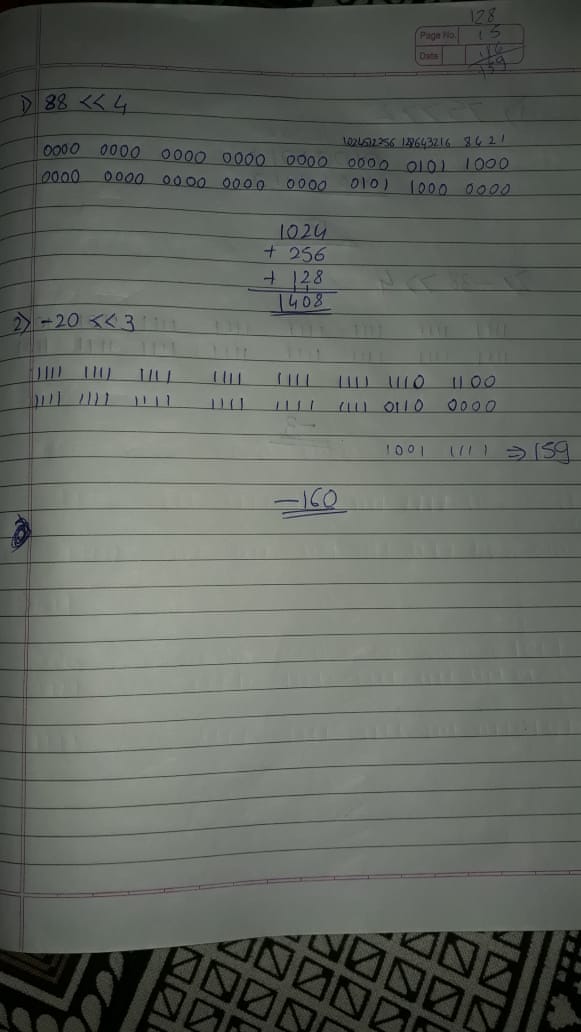 128
Page No. 15
Date 16
159
1) 88 << 4
1024 512 256 128 64 32 16 8 4 2 1
0000 0000 0000 0000 0000 0000 0101 1000
0000 0000 0000 0000 0000 0101 1000 0000
1024
+ 256
+ 128
1408
2) -20 << 3
1111 1111 1111 1111 1111 1111 1110 1100
1111 1111 1111 1111 1111 1111 0110 0000
1001 1111 => 159
-160